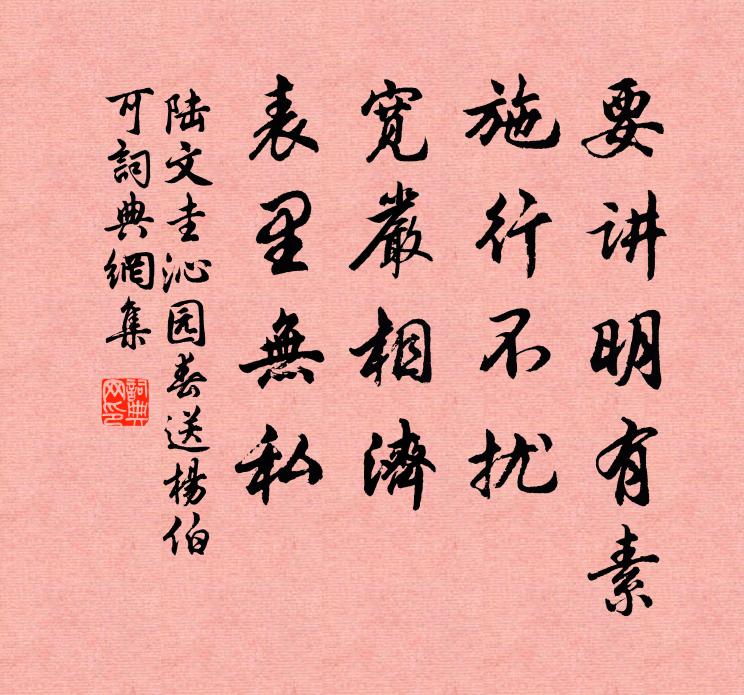 要讲明有素
施行不扰
寛嚴相濟
表里無私
陆文圭沁园春送杨伯
可詞典網集
詞典
网印